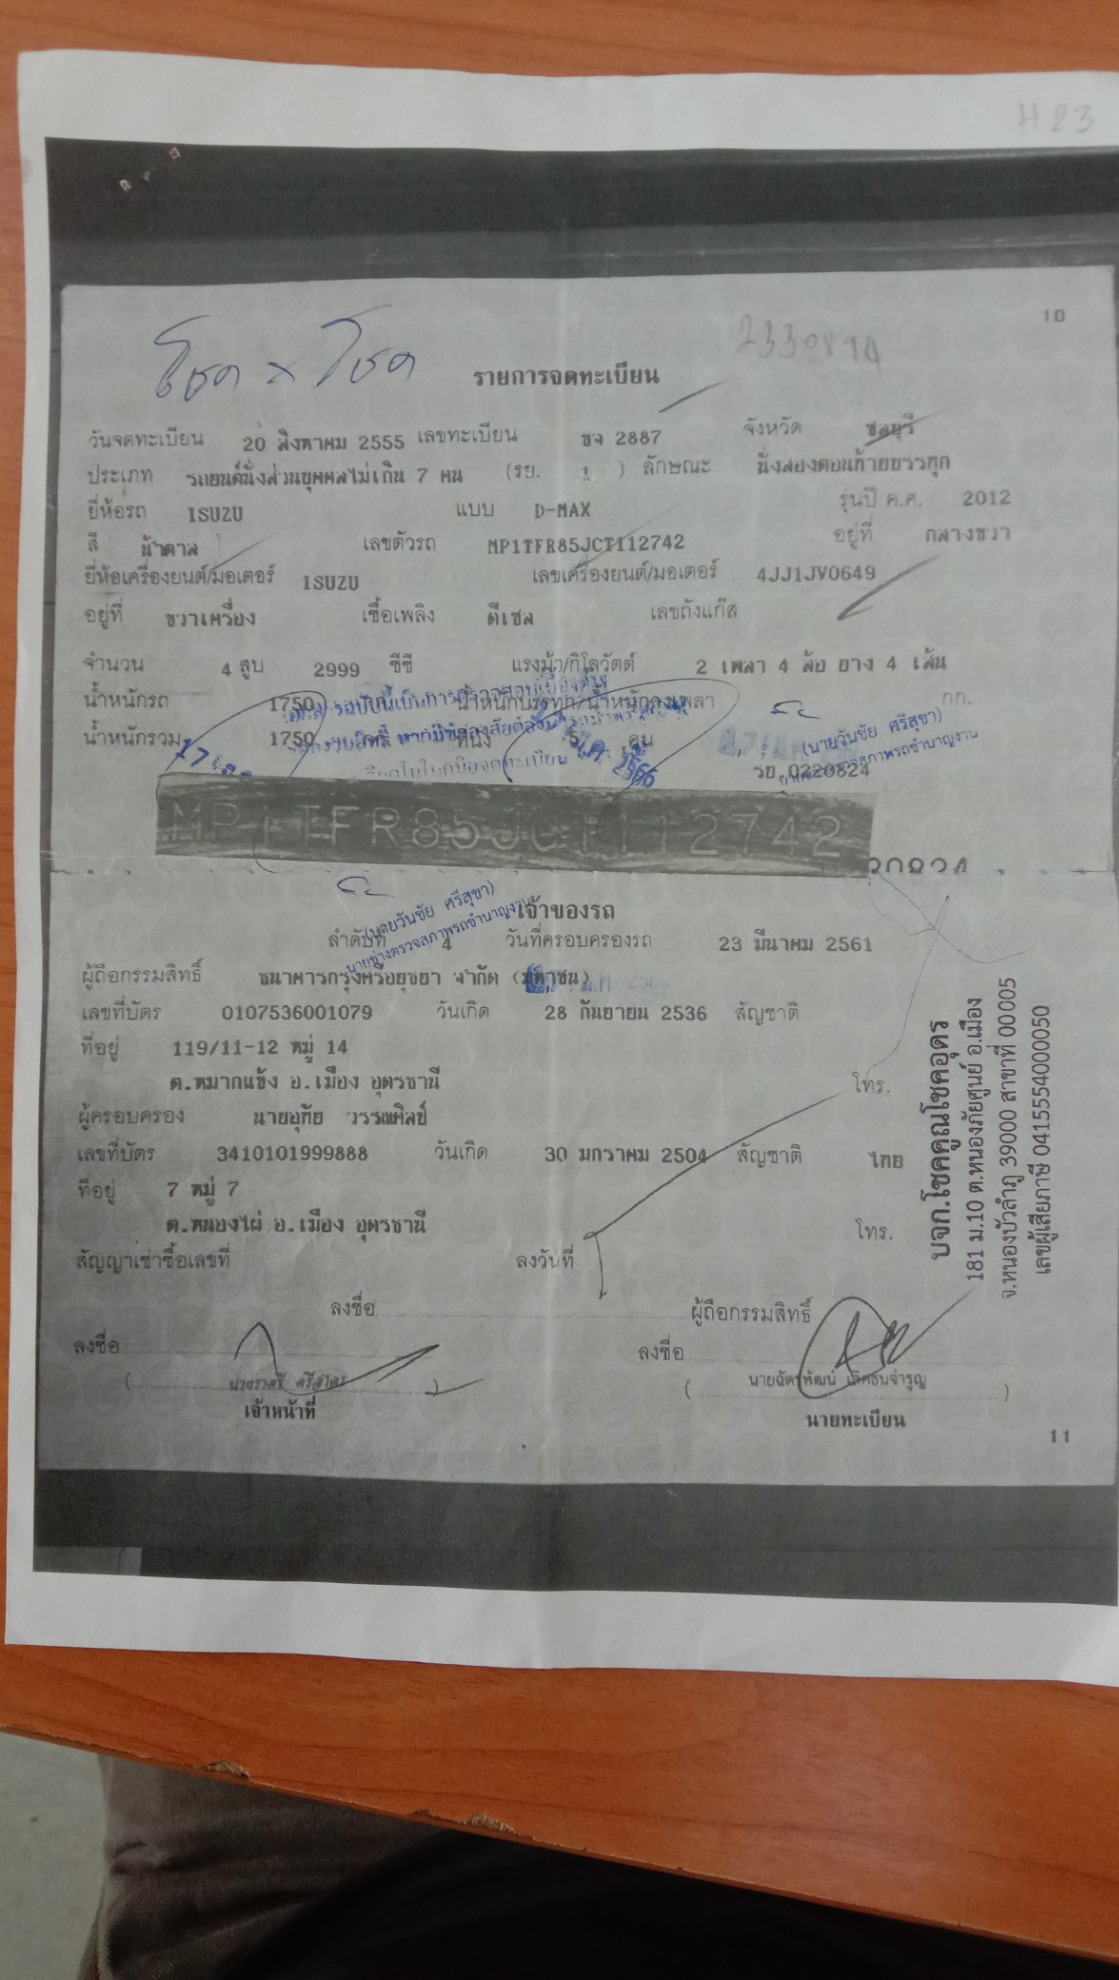 H23
10
โชค × โชค
2330894
รายการจดทะเบียน
วันจดทะเบียน 20 สิงหาคม 2555 เลขทะเบียน ขจ 2887 จังหวัด ชลบุรี
ประเภท รถยนต์นั่งส่วนบุคคลไม่เกิน 7 คน (รย. 1 ) ลักษณะ นั่งสองตอนท้ายบรรทุก
ยี่ห้อรถ ISUZU แบบ D-MAX รุ่นปี ค.ศ. 2012
สี น้ำตาล เลขตัวรถ MP1TFR85JCT112742 อยู่ที่ กลางขวา
ยี่ห้อเครื่องยนต์/มอเตอร์ ISUZU เลขเครื่องยนต์/มอเตอร์ 4JJ1JV0649
อยู่ที่ ขวาเครื่อง เชื้อเพลิง ดีเซล เลขถังแก๊ส
จำนวน 4 สูบ 2999 ซีซี แรงม้า/กิโลวัตต์ 2 เพลา 4 ล้อ ยาง 4 เส้น
น้ำหนักรถ 1750 น้ำหนักบรรทุก/น้ำหนักลงเพลา กก.
น้ำหนักรวม 1750 ที่นั่ง 5 คน
(นายวันชัย ศรีสุขา)
รย 0220824
MP1TFR85JCT112742
เจ้าของรถ
(นายวันชัย ศรีสุขา)
นายช่างตรวจสภาพรถชำนาญงาน
ลำดับที่ 4 วันที่ครอบครองรถ 23 มีนาคม 2561
ผู้ถือกรรมสิทธิ์ ธนาคารกรุงศรีอยุธยา จำกัด (มหาชน)
เลขที่บัตร 0107536001079 วันเกิด 28 กันยายน 2536 สัญชาติ
ที่อยู่ 119/11-12 หมู่ 14
ต.หมากแข้ง อ.เมือง อุดรธานี โทร.
ผู้ครอบครอง นายอุทัย วรรณศิลป์
เลขที่บัตร 3410101999888 วันเกิด 30 มกราคม 2504 สัญชาติ ไทย
ที่อยู่ 7 หมู่ 7
ต.หนองไผ่ อ.เมือง อุดรธานี โทร.
สัญญาเช่าซื้อเลขที่ ลงวันที่
ลงชื่อ ผู้ถือกรรมสิทธิ์
ลงชื่อ ลงชื่อ
เจ้าหน้าที่ นายทะเบียน
11
บจก.โชคคูณโชคอุดร
181 ม.10 ต.หนองภัยศูนย์ อ.เมือง
จ.หนองบัวลำภู 39000 สาขาที่ 00005
เลขผู้เสียภาษี 0415554000050